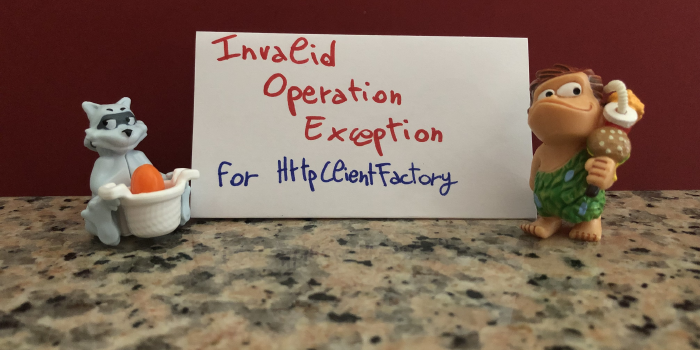 Invalid
Operation
Exception
For HttpClientFactory